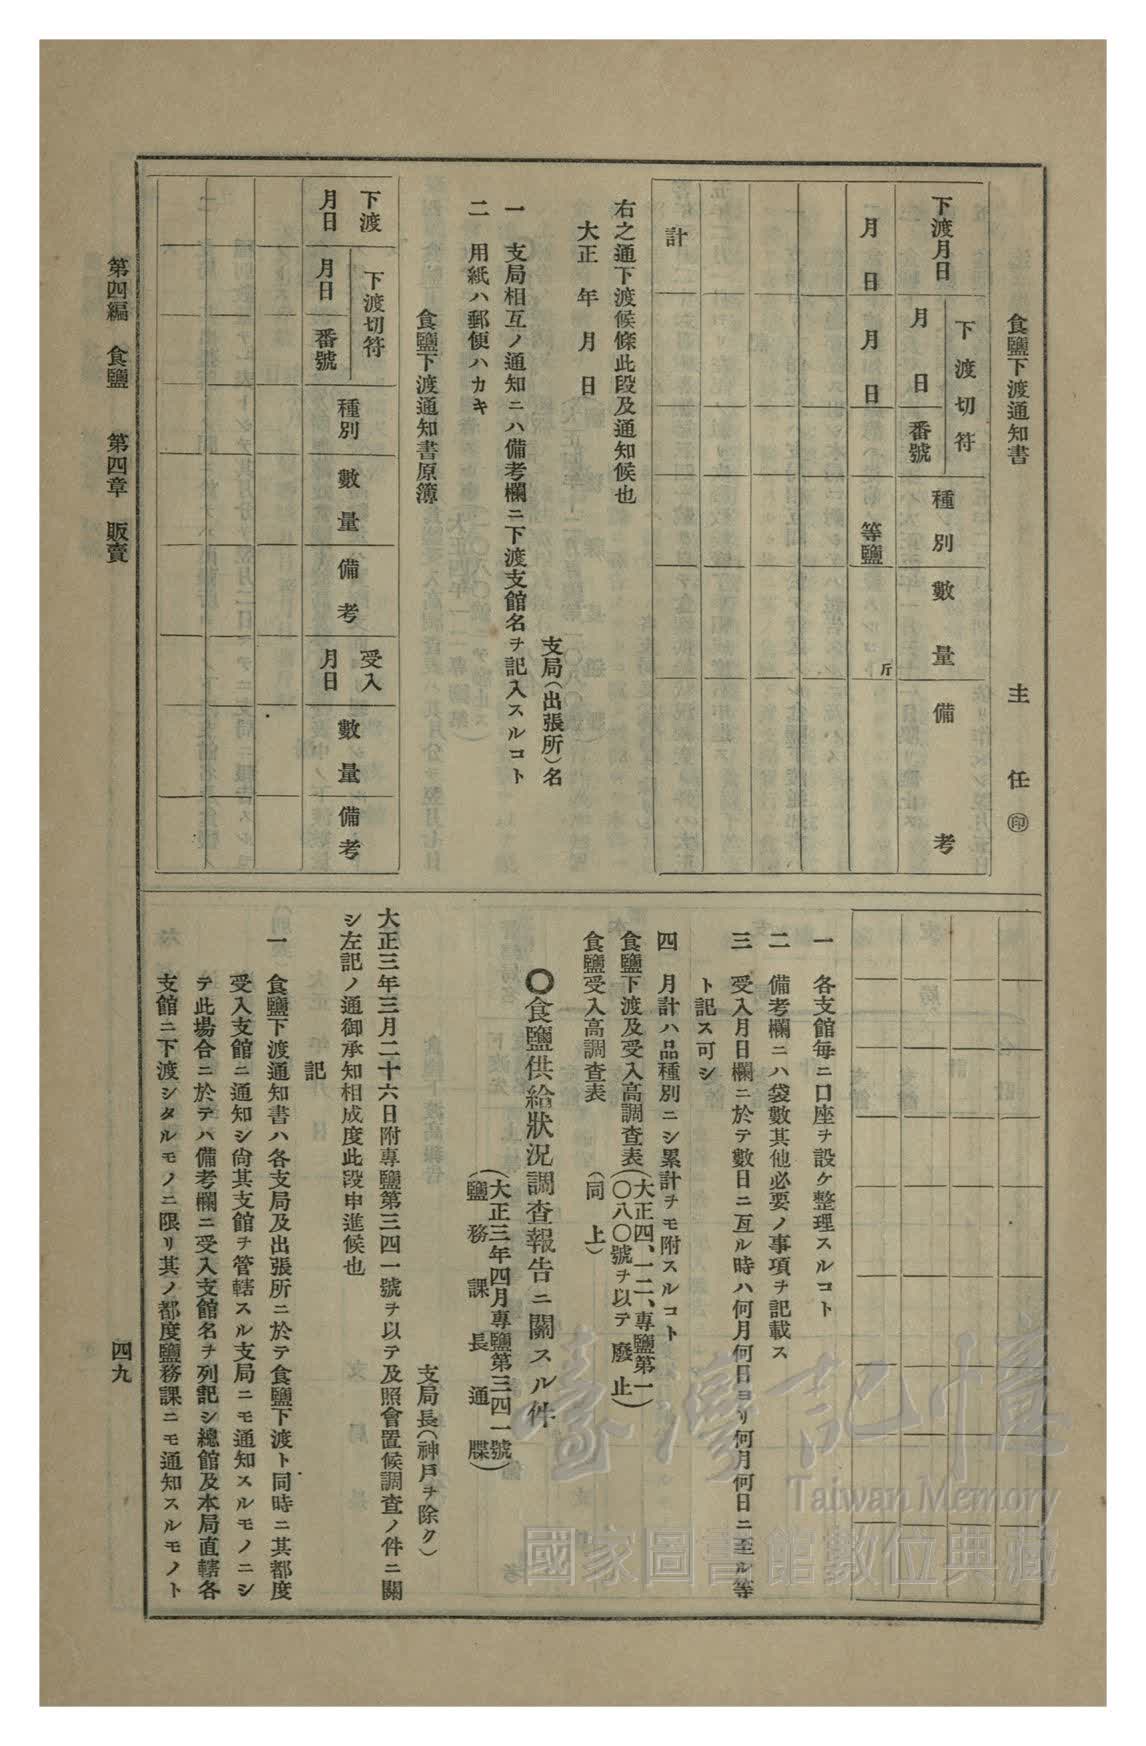 食鹽下渡通知書
主任㊞
下渡月日
下渡切符
月日
番號
種別
數量
備考
月日
月日
等鹽
斤
計
右之通下渡候條此段及通知候也
大正年月日
支局(出張所)名
一 支局相互ノ通知ニハ備考欄ニ下渡支館名ヲ記入スルコト
二 用紙ハ郵便ハカキ
食鹽下渡通知書原簿
下渡月日
下渡切符
月日
番號
種別
數量
備考
受入月日
數量
備考
一 各支館每ニ口座ヲ設ケ整理スルコト
二 備考欄ニハ袋數其他必要ノ事項ヲ記載ス
三 受入月日欄ニ於テ數日ニ亙ル時ハ何月何日ヨリ何月何日ニ至ル等
ト記ス可シ
四 月計ハ品種別ニシ累計ヲモ附スルコト
食鹽下渡及受入高調査表(大正四、一二、專鹽第一〇八〇號ヲ以テ廢止)
食鹽受入高調査表(同上)
〇食鹽供給狀況調査報告ニ關スル件
(大正三年四月專鹽第三四一號
鹽務課長通牒)
支局長(神戶ヲ除ク)
大正三年三月二十六日附專鹽第三四一號ヲ以テ及照會置候調査ノ件ニ關
シ左記ノ通御承知相成度此段申進候也
記
一 食鹽下渡通知書ハ各支局及出張所ニ於テ食鹽下渡ト同時ニ其都度
受入支館ニ通知シ尙其支館ヲ管轄スル支局ニモ通知スルモノニシ
テ此場合ニ於テハ備考欄ニ受入支館名ヲ列記シ總館及本局直轄各
支館ニ下渡シタルモノニ限リ其ノ都度鹽務課ニモ通知スルモノト
第四編 食鹽 第四章 販賣
四九
臺灣記憶
Taiwan Memory
國家圖書館數位典藏